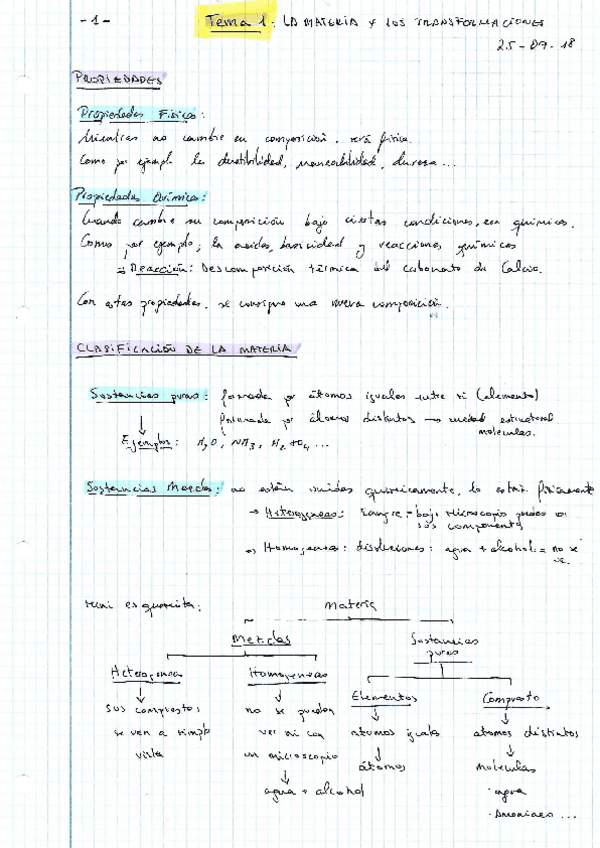 -1-
Tema 1: LA MATERIA Y LOS TRANSFORMACIONES
25-09-18
PROPIEDADES
Propiedades Físicas:
Mientras no cambie su composición, será física.
Como por ejemplo la ductibilidad, maneabilidad, dureza...
Propiedades Químicas:
Cuando cambie su composición bajo ciertas condiciones, son químicas.
Como por ejemplo; la acidez, basicidad y reacciones químicas
Reacción: Descomposición térmica del carbonato de Calcio.
Con estas propiedades, se consigue una nueva composición.
CLASIFICACIÓN DE LA MATERIA
Sustancias puras: formada por átomos iguales entre sí (elemento)
Formada por átomos distintos → unidad estructural
moleculas.
Ejemplos: H2O, NH3, ...
Sustancias Mezclas: no están unidas químicamente, lo están físicamente
→ Heterogeneas: Sangre = bajo microscopio puedes ver
sus componentes
→ Homogeneas: disoluciones: agua + alcohol = no se
ve.
mini esquema:
Materia
Mezclas
Sustancias
puras
Heterogenea
Homogeneas
Elementos
Compuesto
sus compuestos
se ven a simple
vista
no se pueden
ver ni con
un microscopio
agua + alcohol
atomos iguales
átomos
atomos distintos
moleculas
· agua
· Amoniaco ...